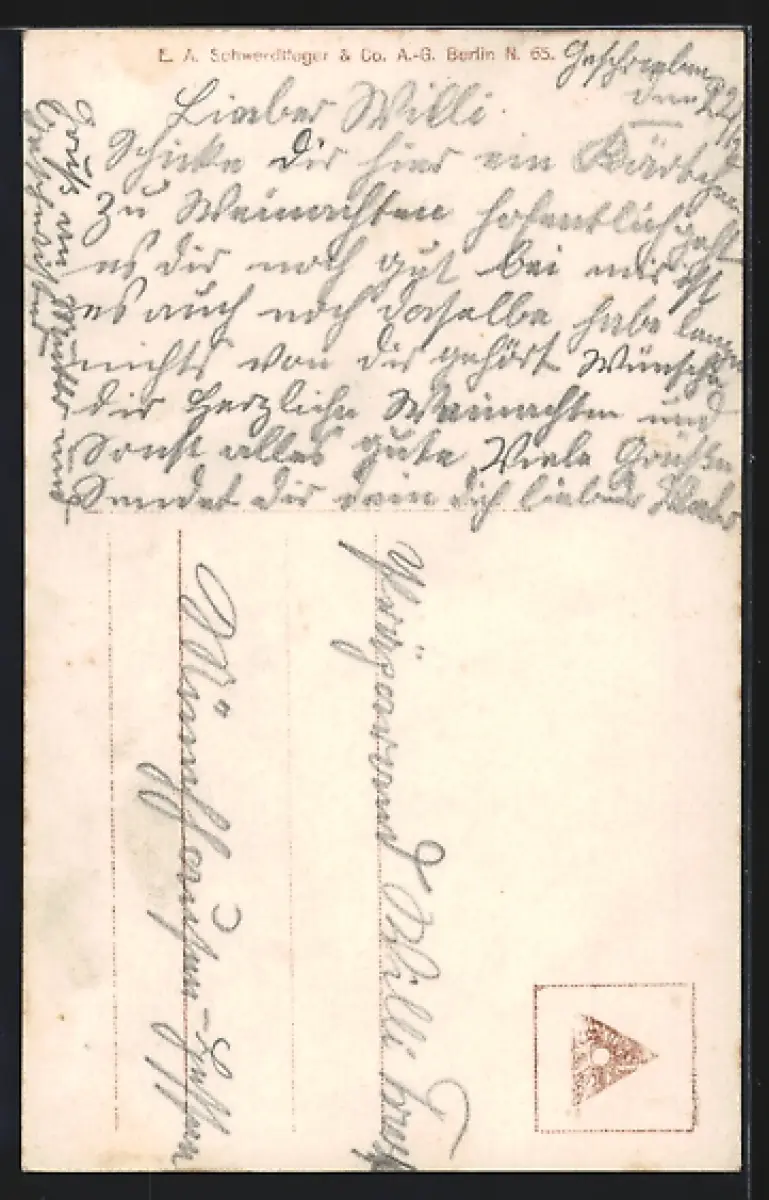 E. A. Schwerdtfeger & Co. A.-G. Berlin N. 65.
Geschrieben
den 22/12
Lieber Willi.
Schicke dir hier ein Kärtchen
zu Weinachten hofentlich geht
es dir noch gut bei mir ist
es auch noch daselbe habe lange
nichts von dir gehört Wünsche
dir Herzliche Weinachten und
Sonst alles gute Viele Grüße
Sendet dir dein dich liebender
Gruß von Mutter und
Geschwister
Willi